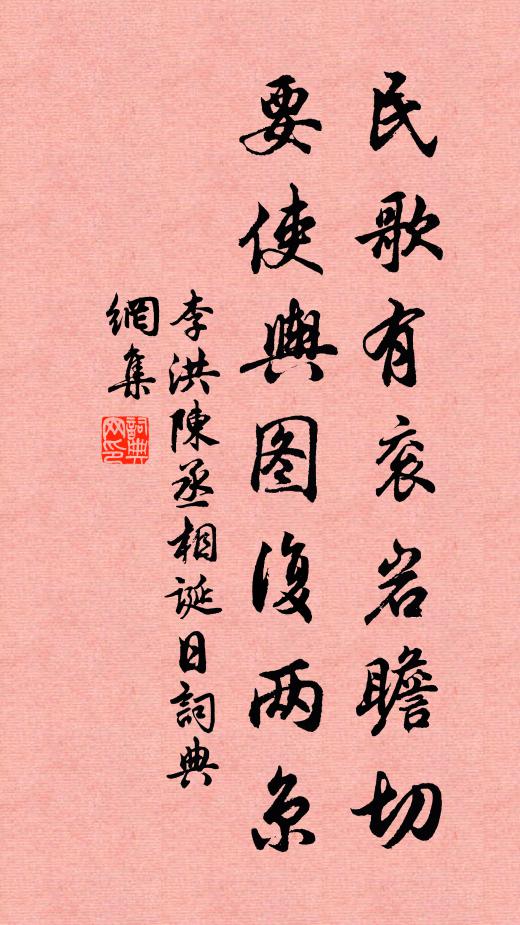 民歌有衮岩瞻切
要使輿图復两京
李洪陳丞相诞日詞典
網集
詞典
网印